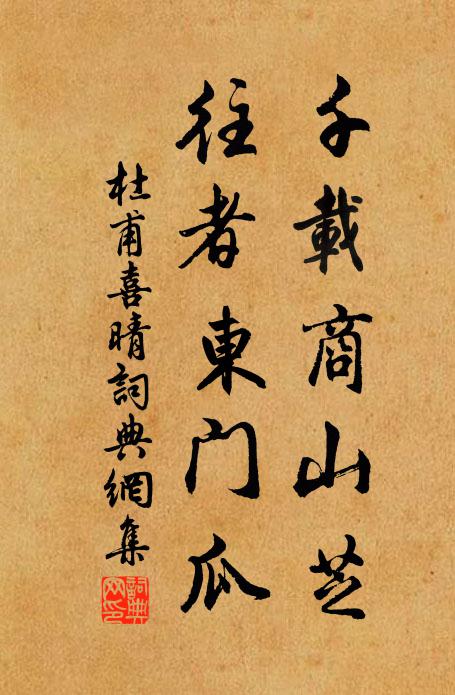 千載商山芝
往者東門瓜
杜甫喜晴詞典網集
詞典
网印